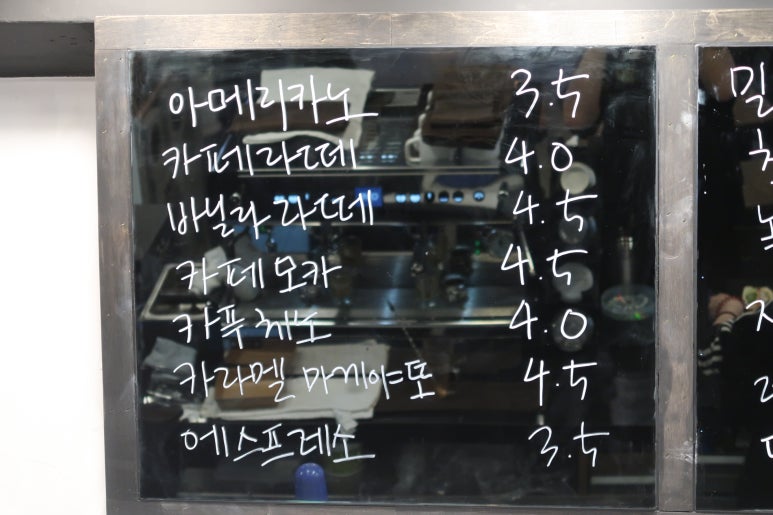 아메리카노 3.5
카페라떼 4.0
바닐라 라떼 4.5
카페모카 4.5
카푸체노 4.0
카라멜 마끼야또 4.5
에스프레소 3.5
밀